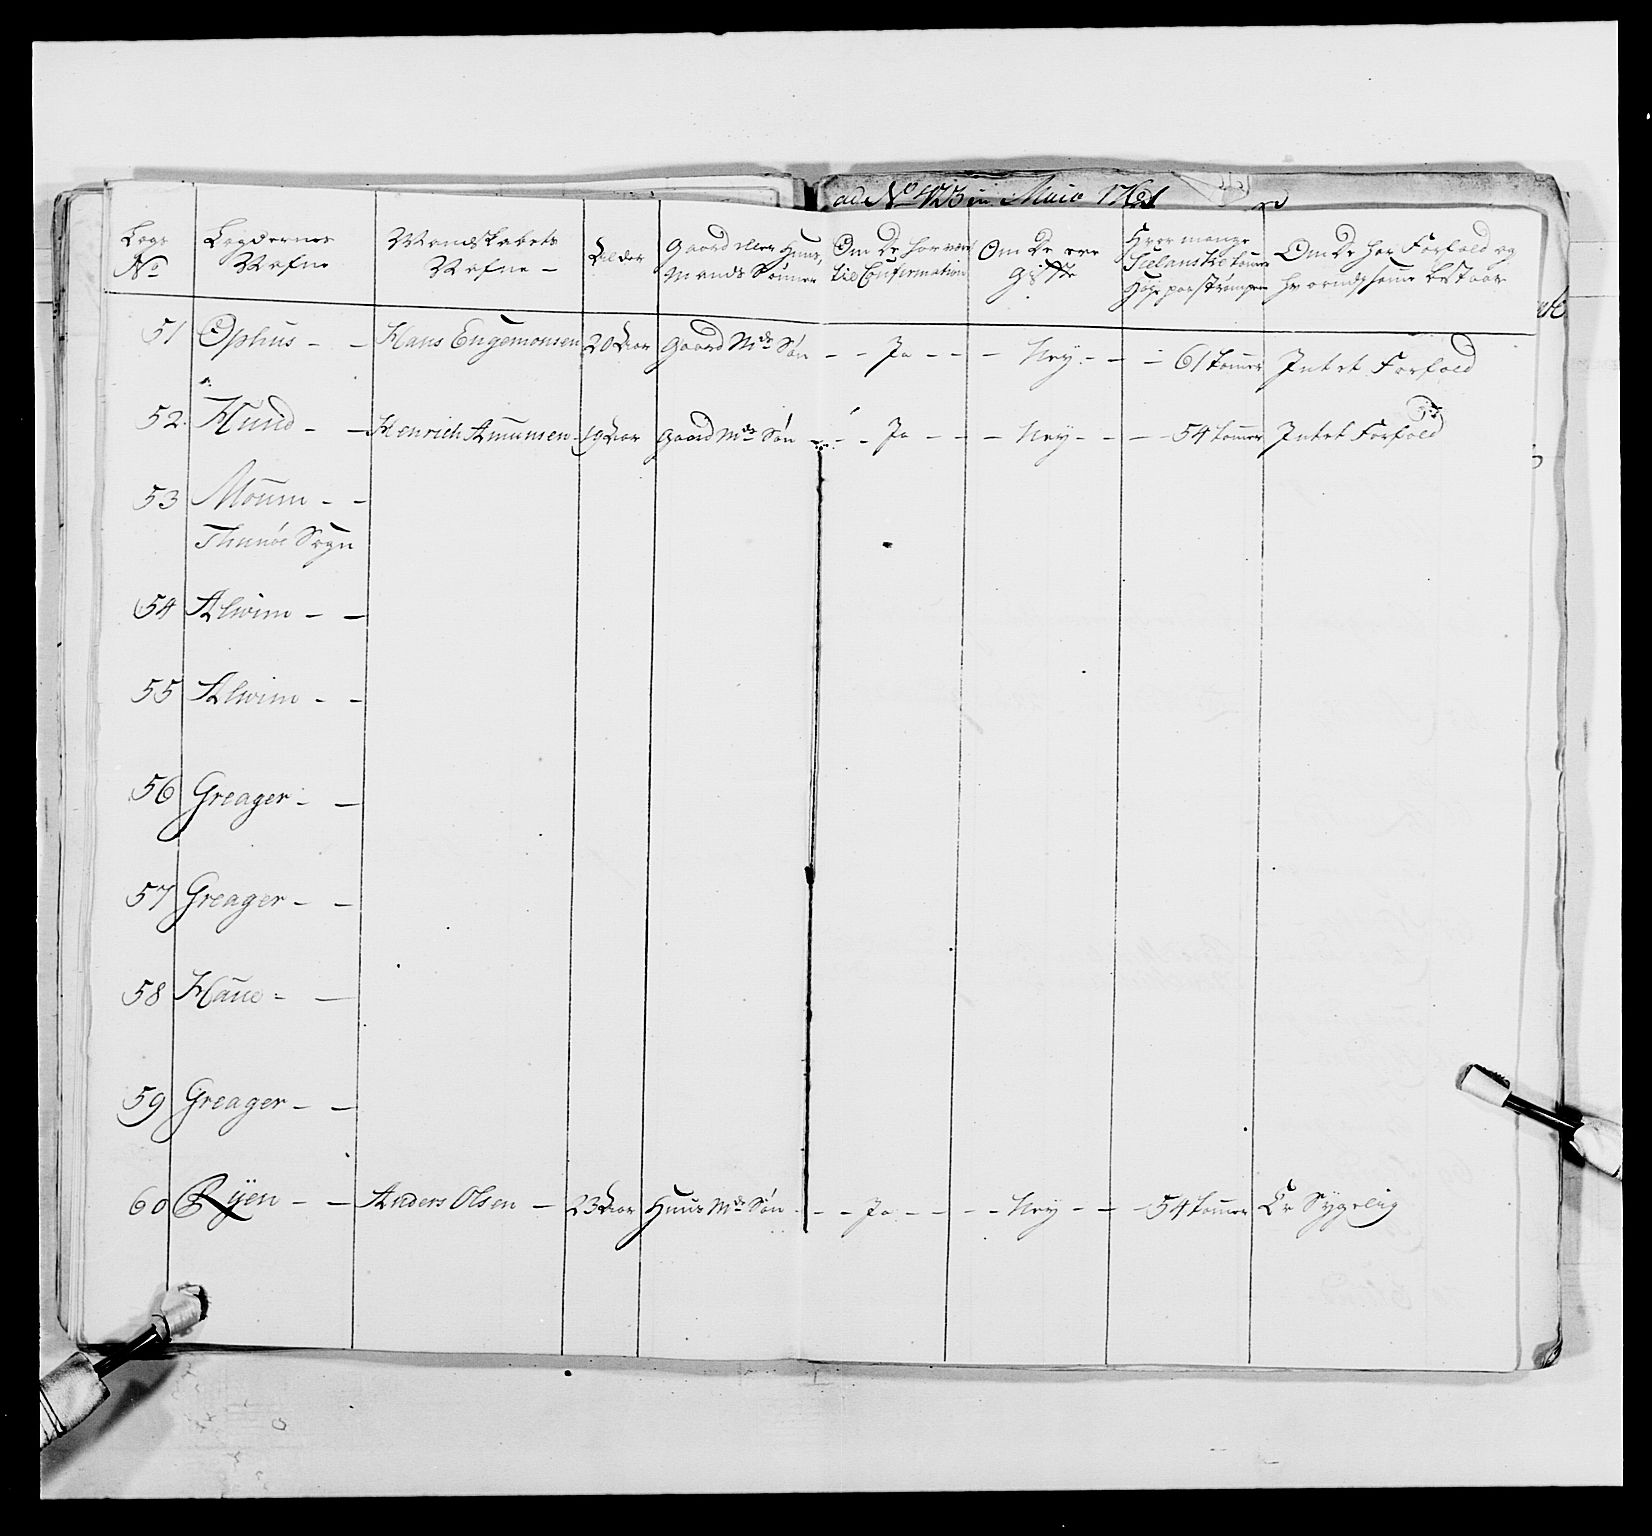 ad No 423 in Maio 1761
Legs No | Legdernes Nafne | Mandskabets Nafne - | Alder | Gaard eller Huus, Mands Sønner | Om De har vært til Confirmation | Om De ere Gifte | Hvor mange Sielanske tommer Høye paa strømper | Om De har Forfald og hvorudj samme bestaar
51 Ophus - - Hans Engemonsen 20 Aar Gaard Mds Søn - - Ja - - - Ney - - - 61 tommer Intet Forfald
52. Hund - - Henrich Amunsen 19 Aar Gaard Mds Søn - - - Ja - - - Ney - - - 54 tommer Intet Forfald
53 Moum - -
Thunøe Sogn
54 Alwim - -
55 Alwim - -
56 Greager - -
57 Greager - -
58 Haue - -
59 Greager - -
60 Ryen - - Anders Olsen - 23 Aar Huus Mds Søn - - - Ja - - - - Ney - - - 54 tommer Er Sygelig